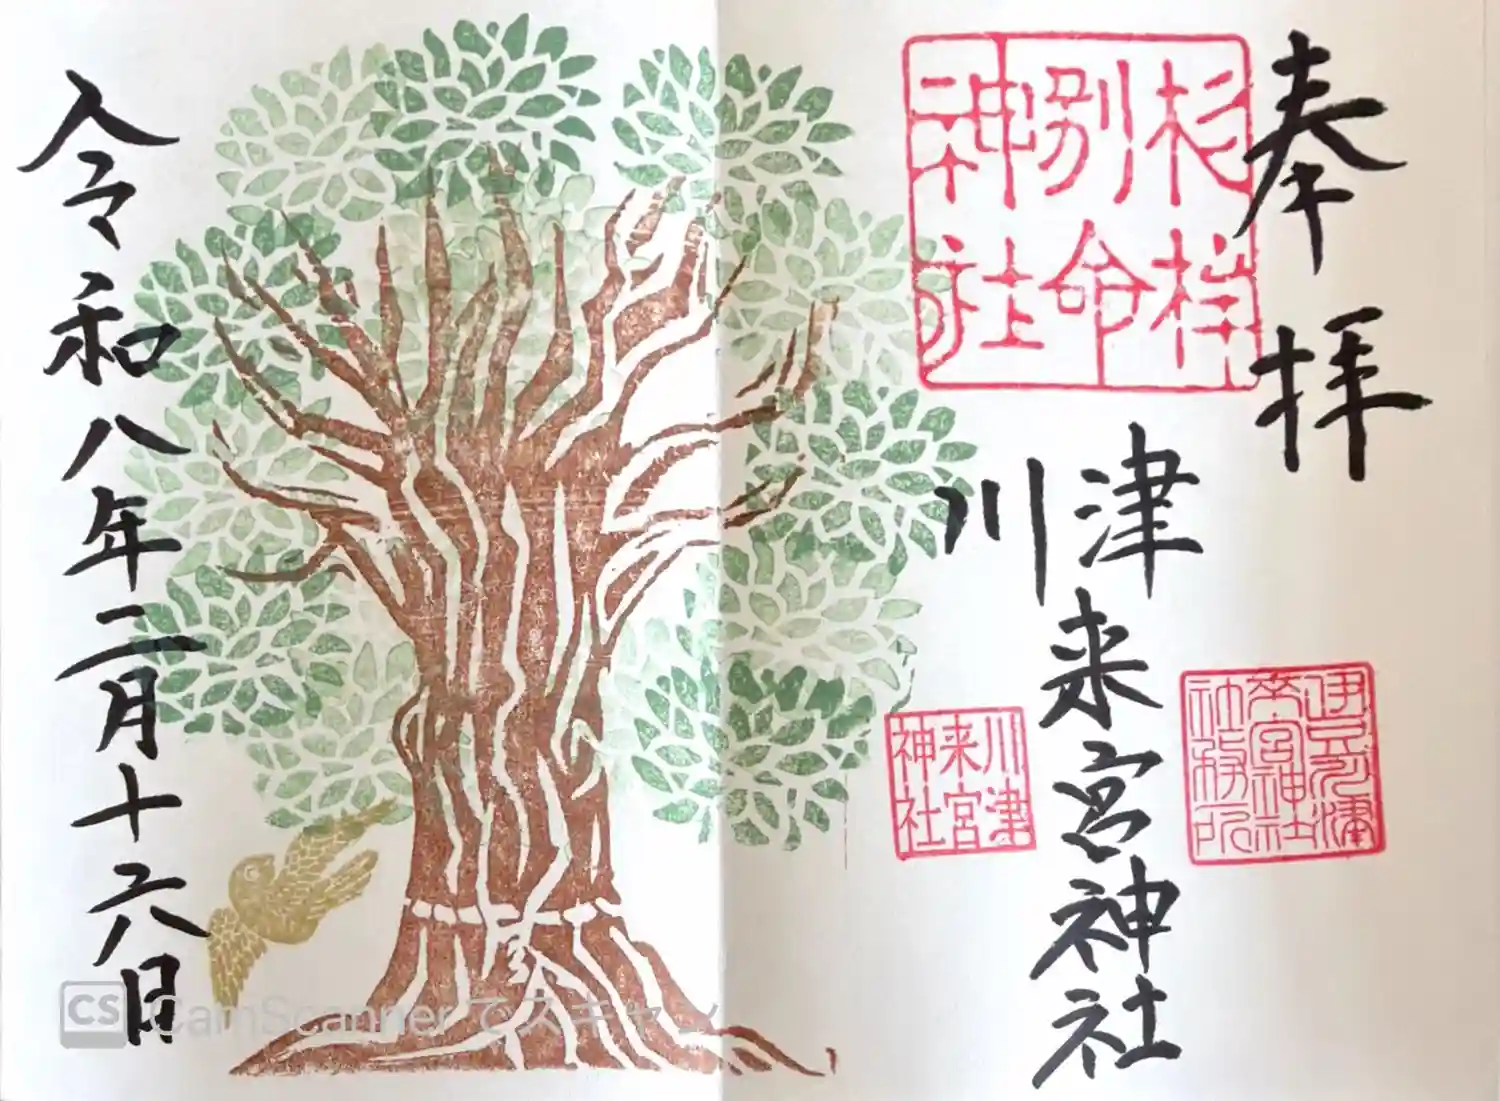 奉拝
杉桙
別命
神社
川津来宮神社
伊豆
来宮神社
社務所
川津
来宮
神社
令和八年二月十六日
CS CamScanner でスキャン